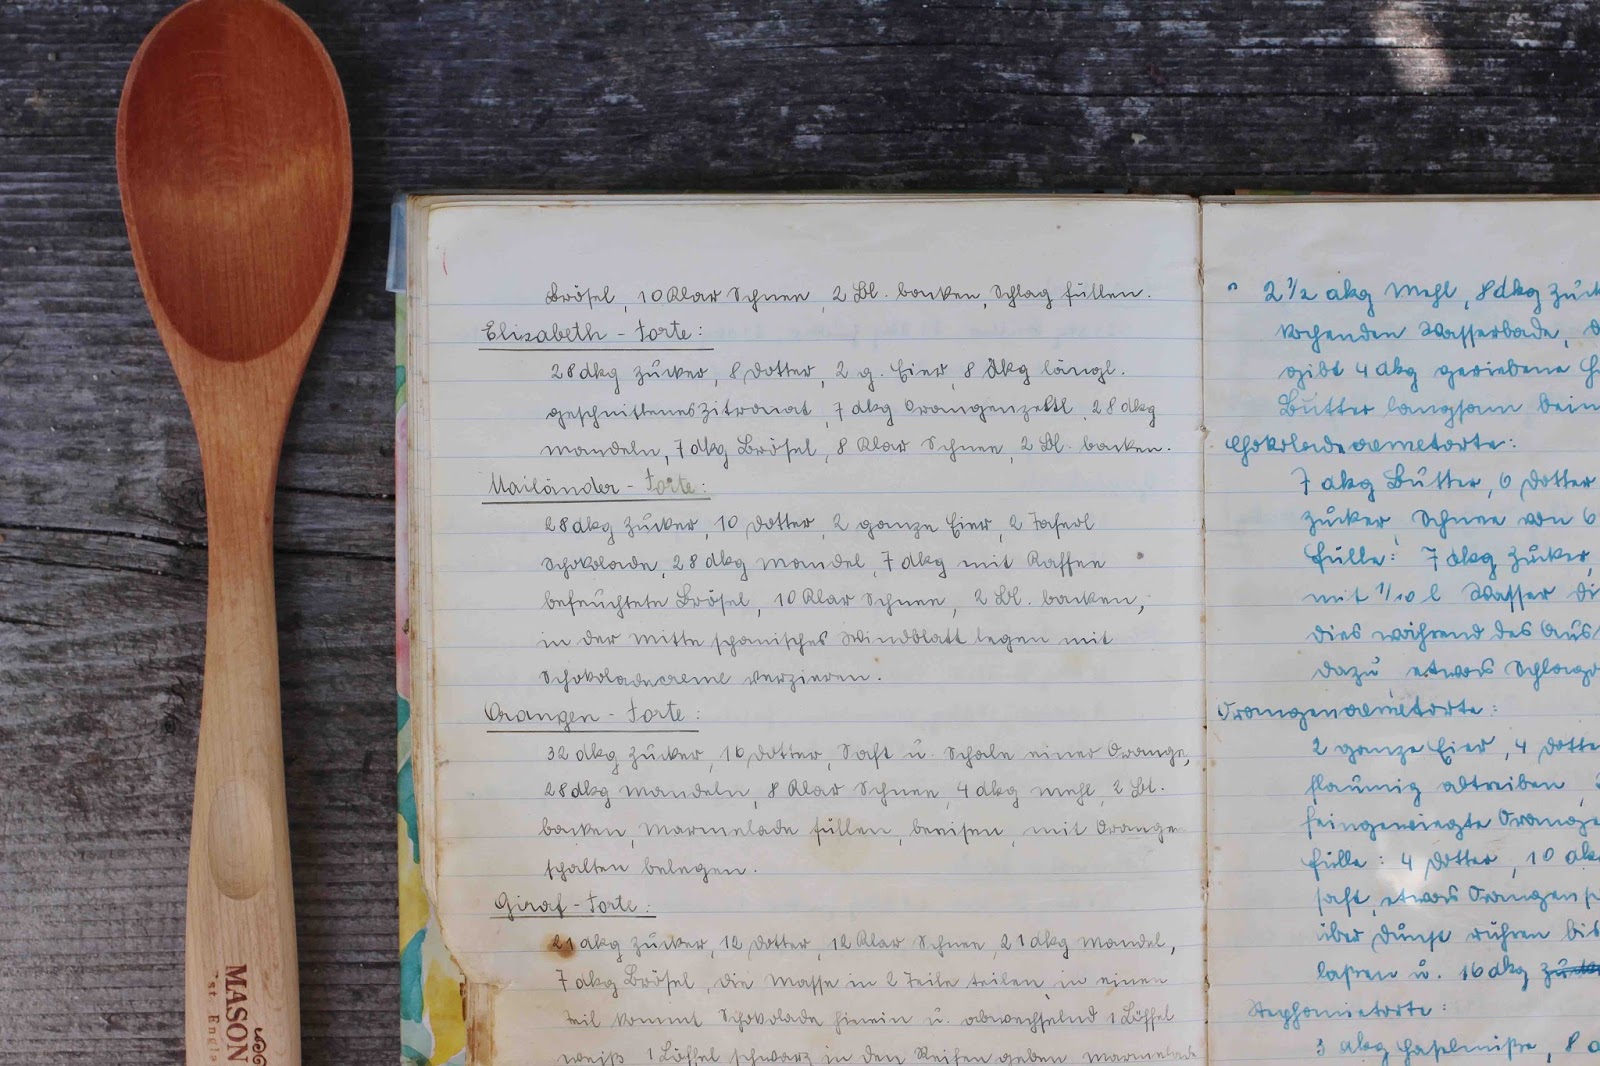 Brösel, 10 Klar Schnee, 2 Bl. backen, Schlag füllen.
Elisabeth - Torte:
28 dkg Zucker, 8 Dotter, 2 g. Eier, 8 dkg längl.
geschnittenes Zitronat, 7 dkg Orangenzeltl, 28 dkg
Mandeln, 7 dkg Brösel, 8 Klar Schnee, 2 Bl. backen.
Mailänder - Torte:
28 dkg Zucker, 10 Dotter, 2 ganze Eier, 2 Taferl
Schokolade, 28 dkg Mandel, 7 dkg mit Kaffee
befeuchtete Brösel, 10 Klar Schnee, 2 Bl. backen,
in der Mitte spanisches Windblatt legen mit
Schokoladecreme verzieren.
Orangen - Torte:
32 dkg Zucker, 16 Dotter, Saft u. Schale einer Orange,
28 dkg Mandeln, 8 Klar Schnee, 4 dkg Mehl, 2 Bl.
backen, Marmelade füllen, beeisen, mit Orange
spalten belegen.
Giraf - Torte:
21 dkg Zucker, 12 Dotter, 12 Klar Schnee, 21 dkg Mandel,
7 dkg Brösel, die Masse in 2 Teile teilen, in einen
Teil kommt Schokolade hinein u. abwechselnd 1 Löffel
weiß 1 Löffel schwarz in den Reifen geben Marmelade
2 1/2 dkg Mehl, 8 dkg Zuck
kochenden Wasserbade, d
gibt 4 dkg geriebene
Butter langsam bein
Chokoladecremetorte:
7 dkg Butter, 6 Dotter
Zucker, Schnee von 6
Fülle: 7 dkg Zucker,
mit 1/10 l Wasser di
dies während des Aus
dazu etwas Schlago
Orangencremetorte:
2 ganze Eier, 4 Dotte
flaumig abtreiben,
feingewiegte Orange
Fülle: 4 Dotter, 10 dk
saft, etwas Orangen
über Dunst rühren bis
laßen u. 16 dkg
Stephanietorte:
3 dkg Haselnüße, 8 d
MASON
Est. Engla